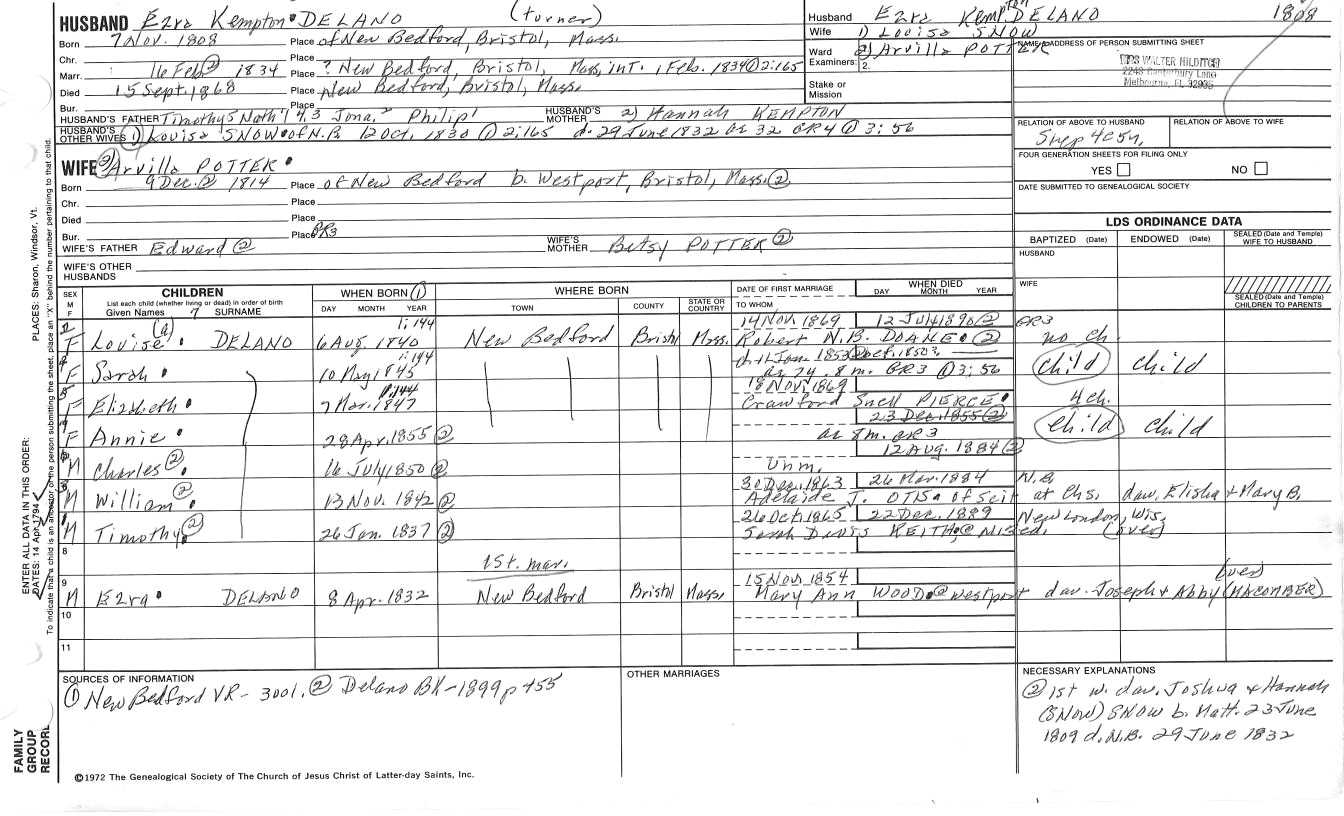 HUSBAND Ezra Kempton DELANO (turner)
Born 7 Nov. 1808 Place of New Bedford, Bristol, Mass.
Chr. Place
Marr. 16 Feb. ② 1834 Place ? New Bedford, Bristol, Mass, int. 1 Feb. 1834 ① 2:165
Died 15 Sept. 1868 Place New Bedford, Bristol, Mass.
Bur. Place
HUSBAND'S FATHER Timothy5 Nath'l 4,3 Jona.2 Philip1 HUSBAND'S MOTHER 2) Hannah KEMPTON
HUSBAND'S OTHER WIVES ① Louisa SNOW of N.B. 12 Oct. 1830 ① 2:165 d. 29 June 1832 as 32 GR4 ① 3:56
Husband Ezra Kempton DELANO 1808
Wife 1) Louisa SNOW
Ward 2) Arvilla POTTER
Examiners: 2.
Stake or Mission
NAME & ADDRESS OF PERSON SUBMITTING SHEET
MRS WALTER HILDITCH
2248 Canterbury Lane
Melbourne, FL 32935
RELATION OF ABOVE TO HUSBAND RELATION OF ABOVE TO WIFE
FOUR GENERATION SHEETS FOR FILING ONLY
YES NO
DATE SUBMITTED TO GENEALOGICAL SOCIETY
WIFE ② Arvilla POTTER
Born 9 Dec. ② 1814 Place of New Bedford b. Westport, Bristol, Mass. ②
Chr. Place
Died Place
Bur. Place GR3
WIFE'S FATHER Edward ② WIFE'S MOTHER Betsy POTTER ②
WIFE'S OTHER HUSBANDS
LDS ORDINANCE DATA
BAPTIZED (Date) ENDOWED (Date) SEALED (Date and Temple) WIFE TO HUSBAND
HUSBAND
WIFE
SEALED (Date and Temple) CHILDREN TO PARENTS
SEX M F CHILDREN List each child (whether living or dead) in order of birth Given Names SURNAME WHEN BORN ① DAY MONTH YEAR WHERE BORN TOWN COUNTY STATE OR COUNTRY DATE OF FIRST MARRIAGE TO WHOM WHEN DIED DAY MONTH YEAR
1:144 14 Nov. 1869 12 July 1890 ② GR3
F Louise (a) DELANO 6 Aug 1840 New Bedford Bristol Mass. Robert N.B. DOANE ② no ch
1:144
F Sarah 10 May 1845 as 7d, 8m. GR3 ① 3:56 child child
1:144 18 Nov. 1869
F Elizabeth 7 Mar. 1847 Crawford Snell PIERCE 4 ch.
23 Dec. 1855 ②
F Annie 28 Apr. 1855 ② as 8m. GR3 child child
12 Aug. 1884 ②
M Charles ② 16 July 1850 ② Unm.
30 Dec. 1863 26 Mar. 1884 N.B.
M William ② 13 Nov. 1842 ② Adelaide J. OTIS of Scit at Chs. dau. Elisha & Mary B.
26 Oct 1865 22 Dec. 1889 New London, Wis.
M Timothy ② 26 Jan. 1837 ② Sarah Davis KEITH, (over)
8
1st. mar.
9 15 Nov 1854 (over)
M Ezra DELANO 8 Apr. 1832 New Bedford Bristol Mass. Mary Ann WOOD @ Westport dau. Joseph & Abby (MACOMBER)
10
11
SOURCES OF INFORMATION
① New Bedford VR - 3001. ② Delano BK - 1899 p 455
OTHER MARRIAGES
NECESSARY EXPLANATIONS
② 1st w. dau. Joshua & Hannah
(SNOW) SNOW b. Matt. 23 June
1809 d. N.B. 29 June 1832
©1972 The Genealogical Society of The Church of Jesus Christ of Latter-day Saints, Inc.
FAMILY GROUP RECORD
ENTER ALL DATA IN THIS ORDER:
DATES: 14 Apr. 1794
PLACES: Sharon, Windsor, Vt.
To indicate that a child is an ancestor of the person submitting the sheet, place an "X" behind the number pertaining to that child.